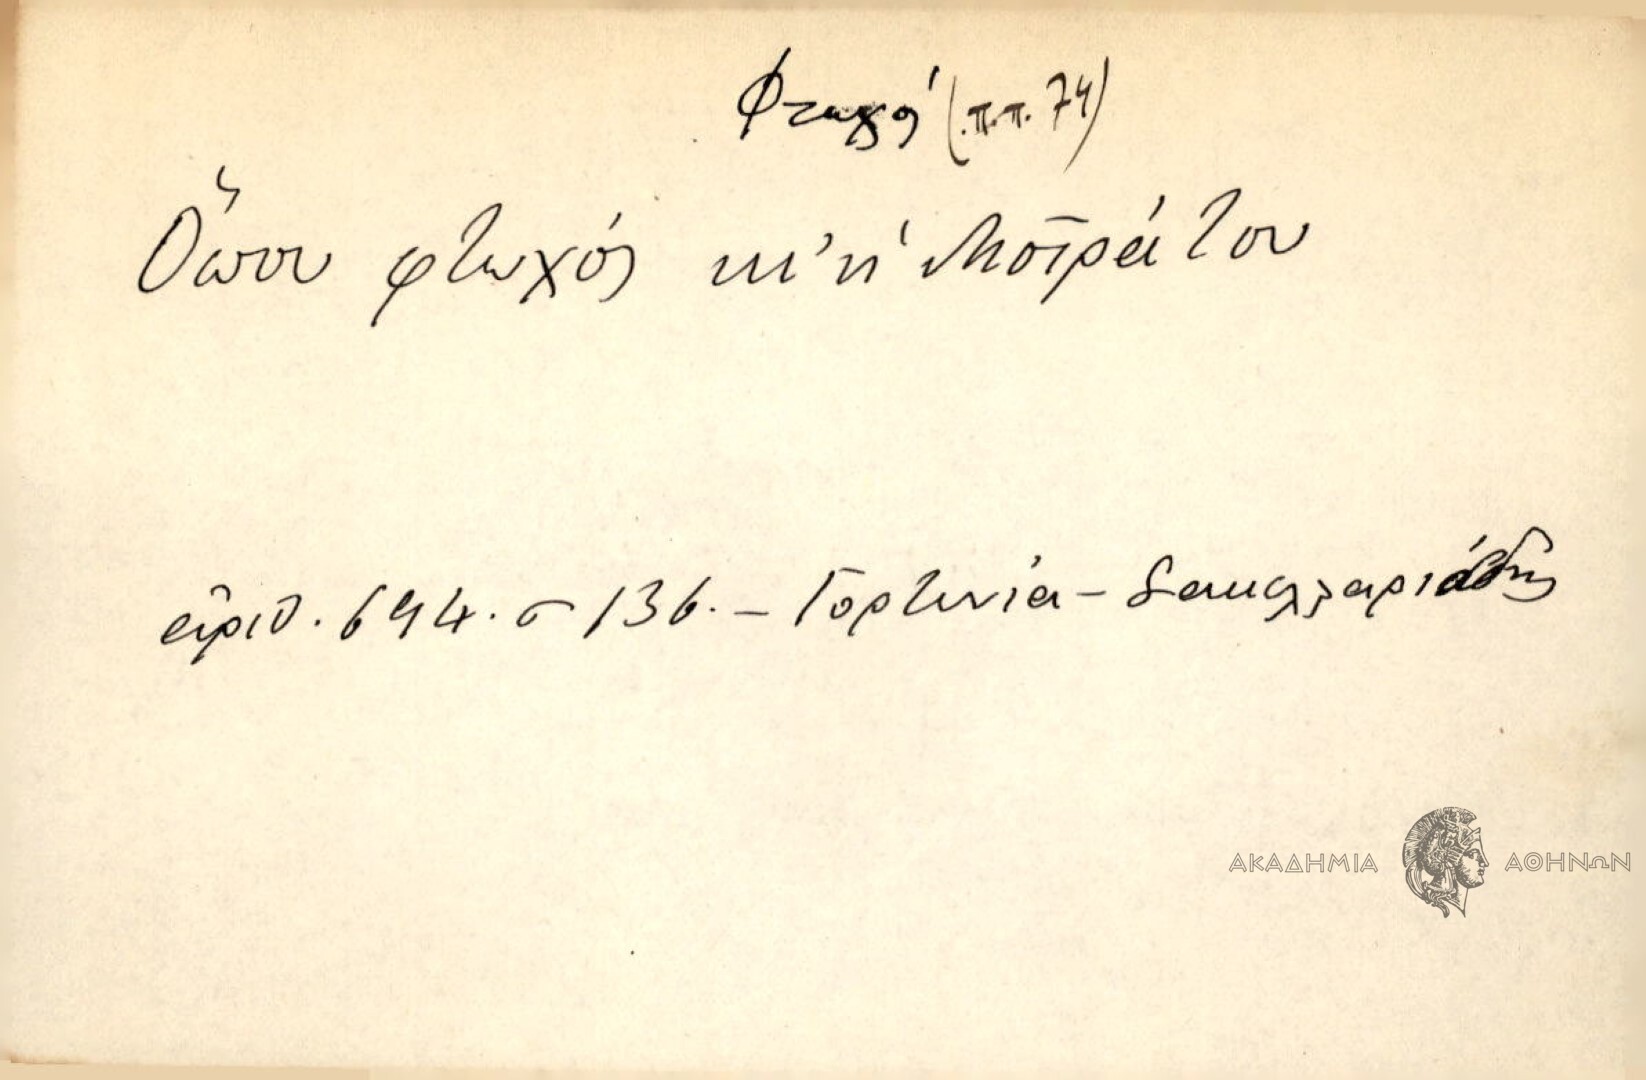 Φτωχός (π.π. 74)
Ὅπου φτωχός κι' ἡ Μοῖρά του
ἀριθ. 694. σ 136. – Γορτυνία – Σακελλαριάδης
ΑΚΑΔΗΜΙΑ ΑΘΗΝΩΝ